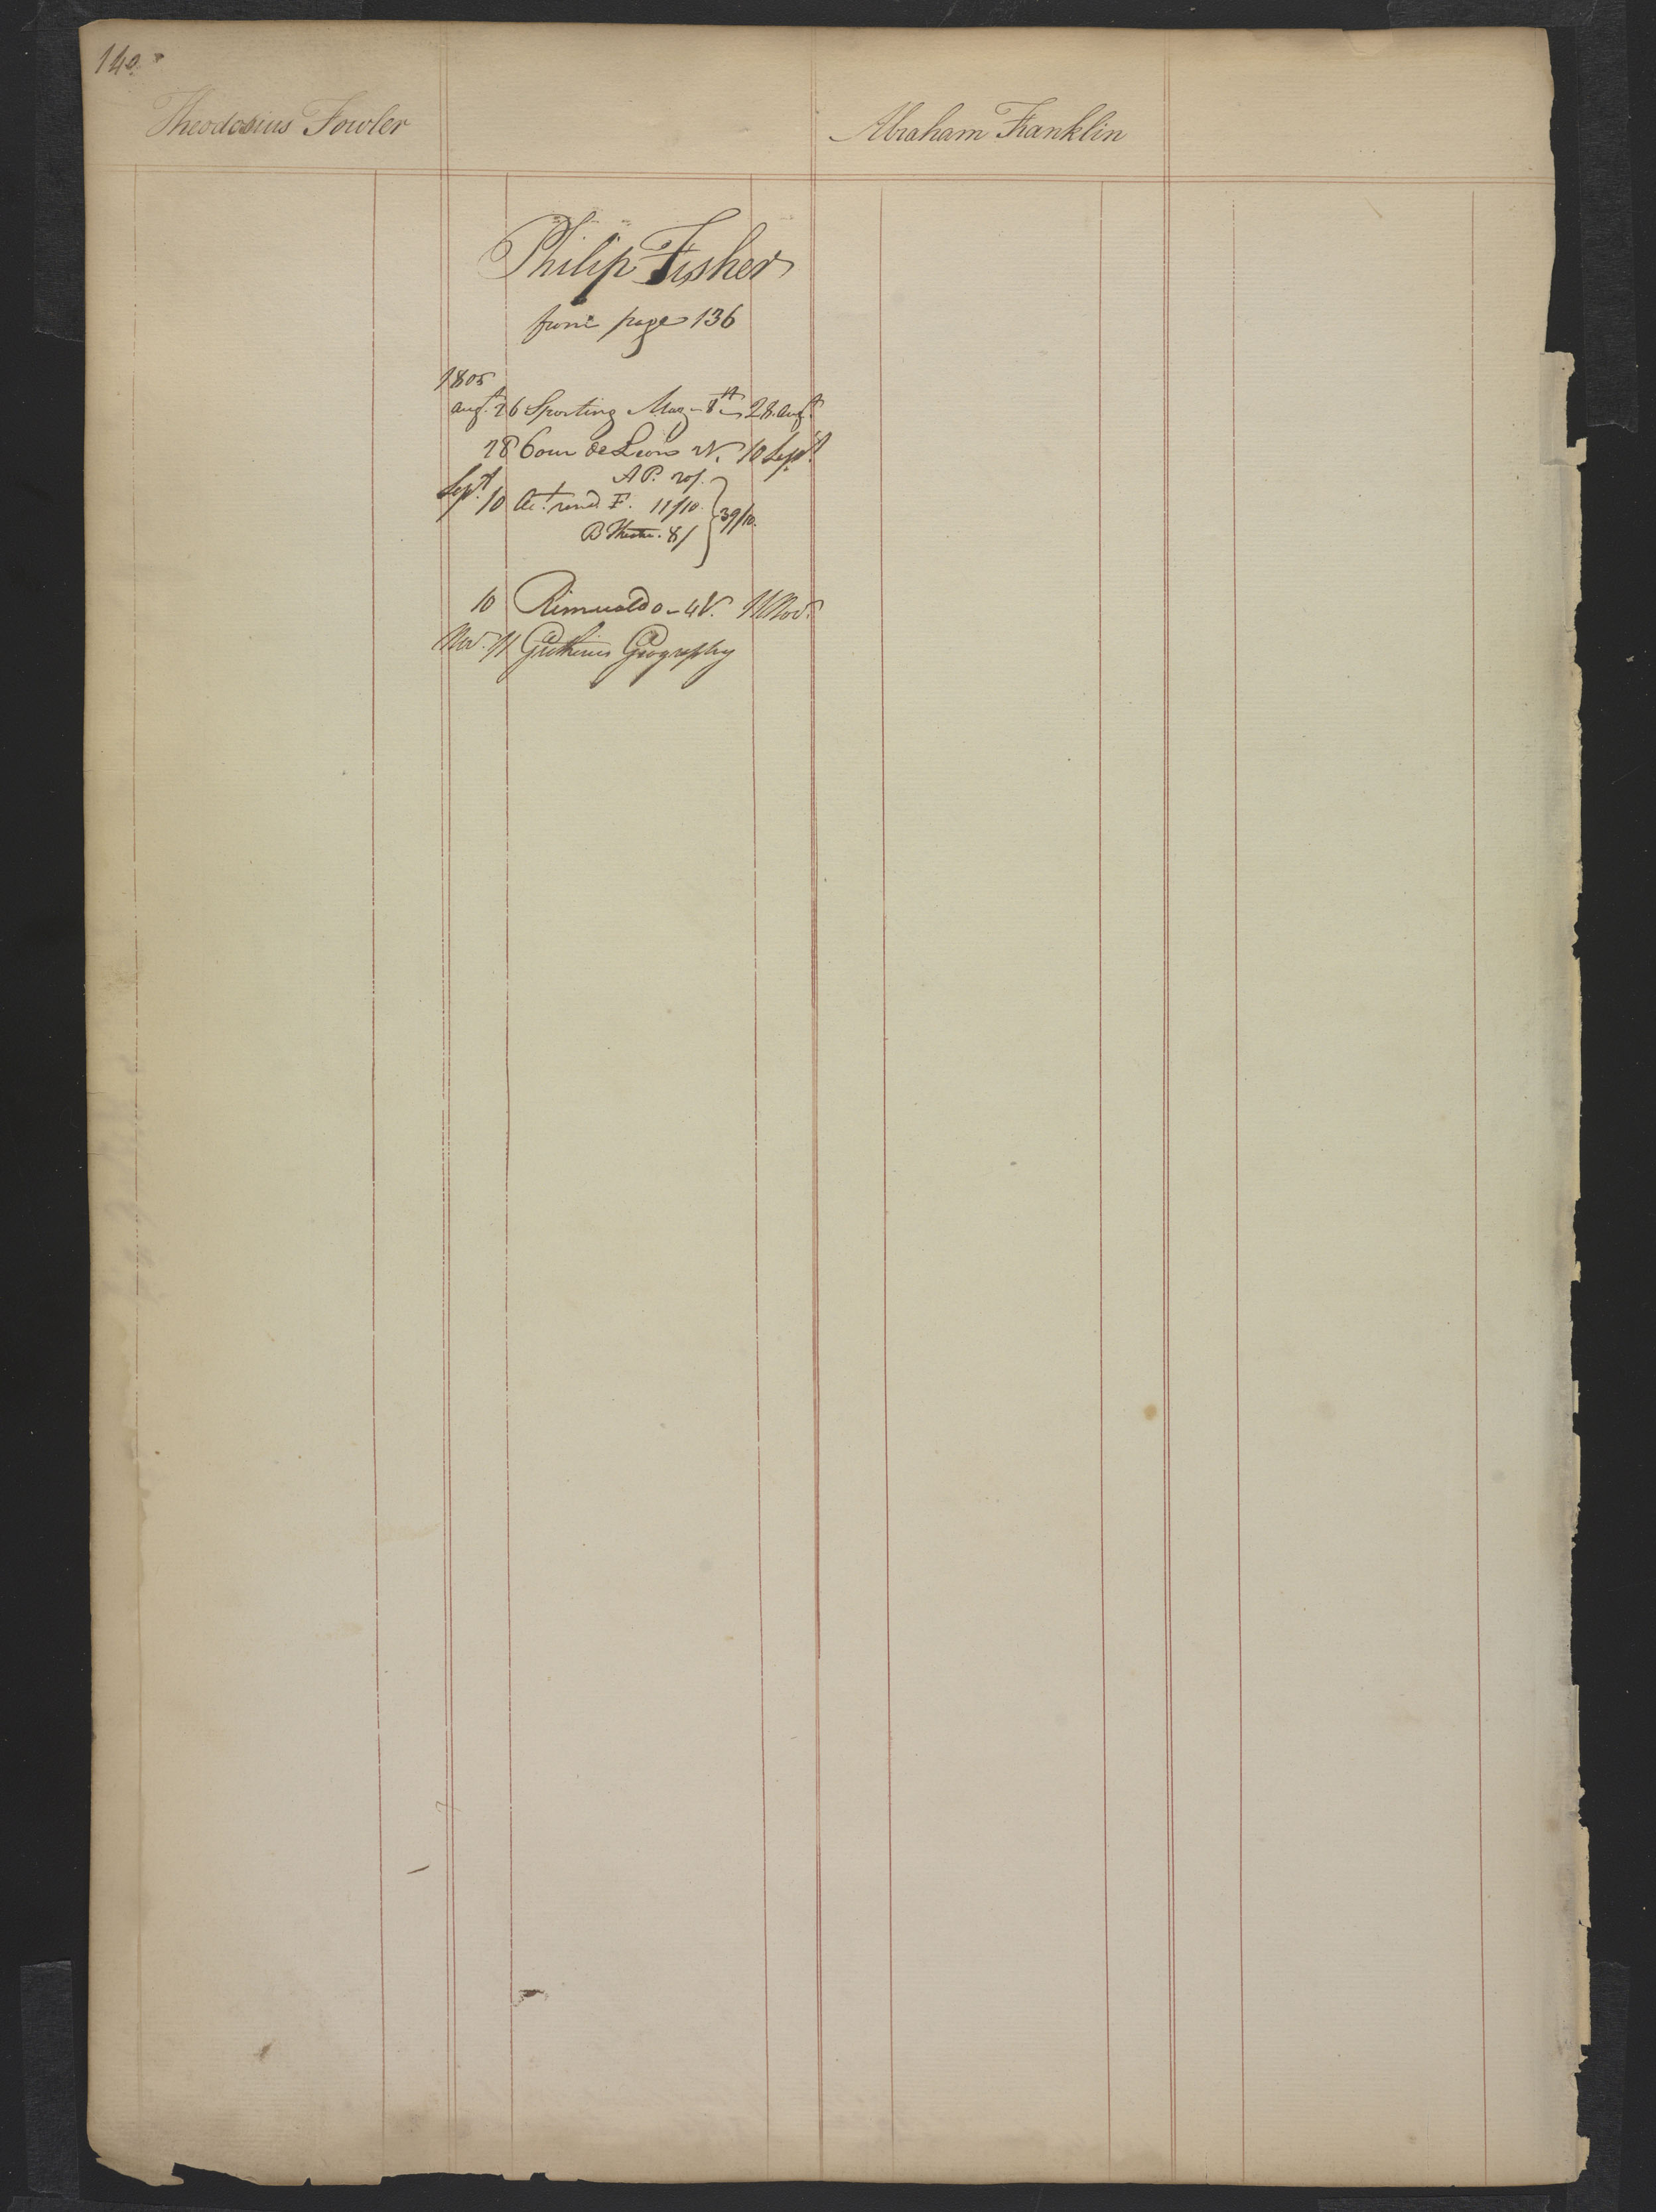 140
Theodosius Fowler
Abraham Franklin
Philip Fisher
from page 136
1805
Aug.t 26 Sporting Mag - 8th 28 Augt
28 Cour de Lions 2V. 10 Sept
A P. 20/.
Sept 10 Act. rend. F. 11/10. 39/10.
B 8/
10 Rimualdo - 4 V. 11 Nov.
Nov. 11 Guthries Geography